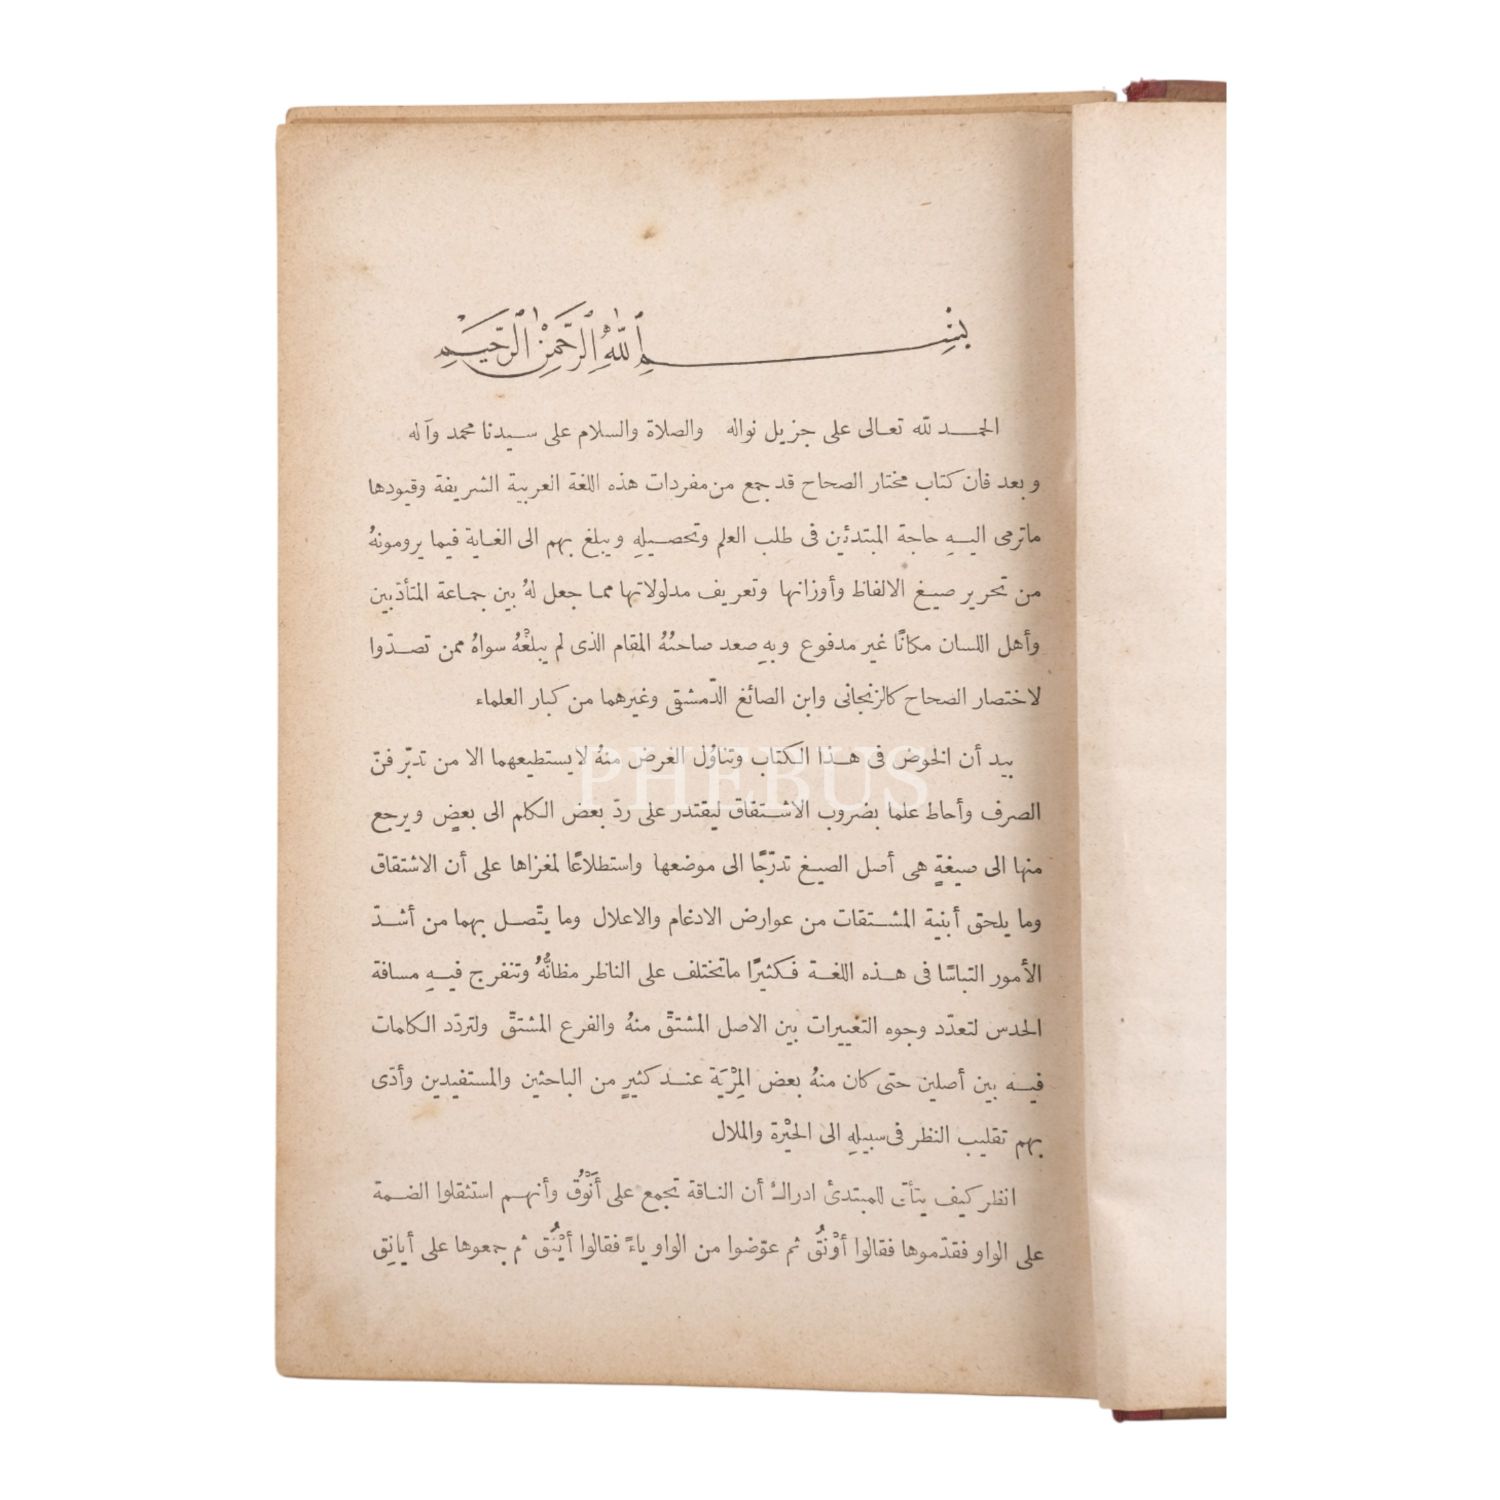 بِسْمِ اللّٰهِ الرَّحْمٰنِ الرَّحِيْمِ
الحمـــد للّه تعـالى على جزيل نواله والصلاة والسلام على سـيدنا محمد وآله
و بعد فان كتاب مختار الصحاح قد جمع من مفردات هذه اللغة العربية الشريفة وقيودها
ماترمى اليـهِ حاجة المبتدئين فى طلب العلم وتحصـيلهِ ويبلغ بهم الى الغـاية فيما يرومونهُ
من تحرير صيـغ الالفاظ وأوزانها وتعريف مدلولاتها ممـا جعل لهُ بين جمـاعة المتأدّبين
وأهل اللسان مكانًا غير مدفوع وبهِ صعد صاحبُهُ المقام الذى لم يبلغْهُ سواهُ ممن تصـدّوا
لاختصار الصحاح كالزنجانى وابن الصائغ الدّمشقى وغيرهما من كبار العلماء
بيد أن الخوض فى هـذا الكتاب وتناوُل الغرض منهُ لايستطيعهما الا من تدبّر فنّ
الصرف وأحاط علما بضروب الاشـتقاق ليقتدر على ردّ بعض الكلم الى بعضٍ ويرجع
منها الى صيغةٍ هى أصل الصيـغ تدرّجًا الى موضعها واستطلاعًا لمغزاها على أن الاشتقاق
وما يلحق أبنية المشـتقات من عوارض الادغام والاعلال وما يتّصـل بهما من أشـدّ
الأمور التباسًا فى هـذه اللغـة فكثيرًا ماتختلف على الناظر مظانُّهُ وتنفرج فيـهِ مسافة
الحدس لتعدّد وجوه التغييرات بين الاصل المشتقّ منهُ والفرع المشتقّ ولتردّد الكلمات
فيـه بين أصلين حتى كان منهُ بعض المِرْيَة عنـد كثيرٍ من الباحثين والمستفيدين وأدّى
بهم تقليب النظر فى سبيلهِ الى الحيْرة والملال
انظر كيف يتأتى للمبتدئ ادراك أن النـاقة تجمع على أَنْوُق وأنهـم استثقلوا الضـمة
على الواو فقدّموها فقالوا أوْنُق ثم عوّضوا من الواو ياءً فقالوا أيْنُق ثم جمعوها على أيانِق
PHEBUS